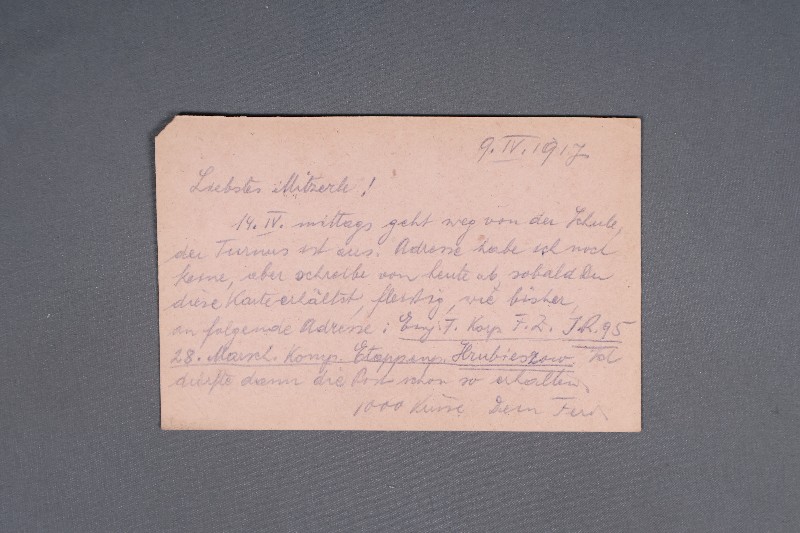 9. IV. 1917
Liebstes Mitzerle!
14. IV. mittags geht weg von der Schule,
der Turnus ist aus. Adresse habe ich noch
keine, aber schreibe von heute ab, sobald Du
diese Karte erhältst, fleißig, wie bisher,
an folgende Adresse: Einj. F. Korp F. Z. I.R. 95
28. Marsch. Komp. Hrubieszow Ich
dürfte dann die Post schon so erhalten.
1000 Küsse Dein Ferd